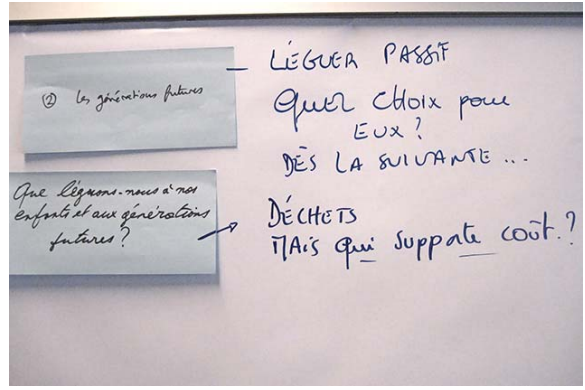 ② Les générations futures
– LÉGUER PASSIF
QUEL CHOIX pour
EUX?
DÈS LA SUIVANTE...
Que léguons-nous à nos
enfants et aux générations
futures?
→ DÉCHETS
MAIS qui supporte coût.?